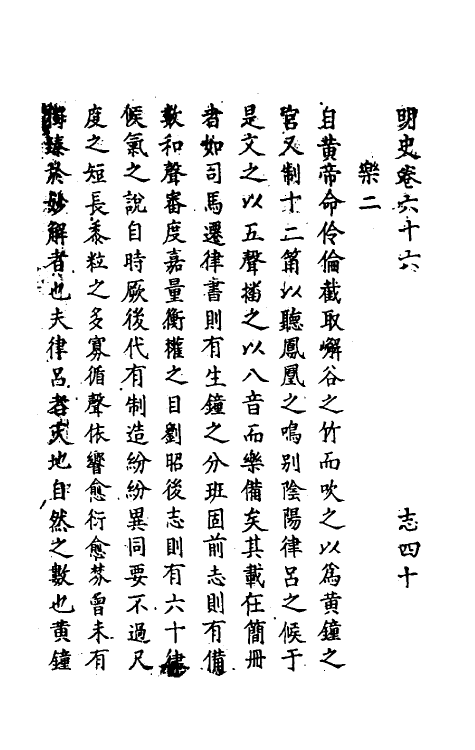 明史卷六十六 志四十
樂二
自黄帝命伶倫截取嶰谷之竹而吹之以爲黄鐘之
宫又制十二筩以聽鳳凰之鳴别陰陽律吕之候于
是文之以五聲播之以八音而樂備矣其載在簡册
者如司馬遷律書則有生鐘之分班固前志則有備
數和聲審度嘉量衡權之目劉昭後志則有六十律
候氣之說自時厥後代有制造紛紛異同要不過尺
度之短長黍粒之多寡循聲依響愈衍愈棼曾未有
臻於妙解者也夫律吕者天地自然之數也黄鐘